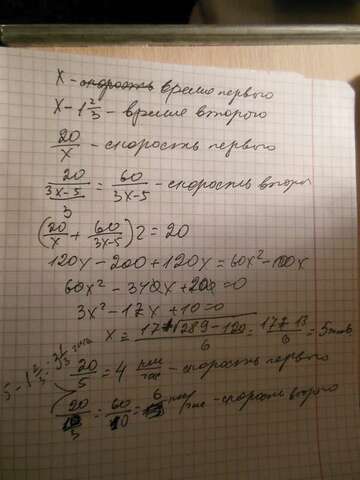 x - скорость время первого
x - 1 2/3 - время второго
20/x - скорость первого
20/((3x-5)/3) = 60/(3x-5) - скорость второго
(20/x + 60/(3x-5)) 2 = 20
120x - 200 + 120x = 60x² - 100x
60x² - 340x + 200 = 0
3x² - 17x + 10 = 0
x = (17+√(289-120))/6 = (17+13)/6 = 5 часов
20/5 = 4 км/час - скорость первого
5 - 1 2/3 = 3 1/3 часа
20/(10/3) = 60/10 = 6 км/час - скорость второго